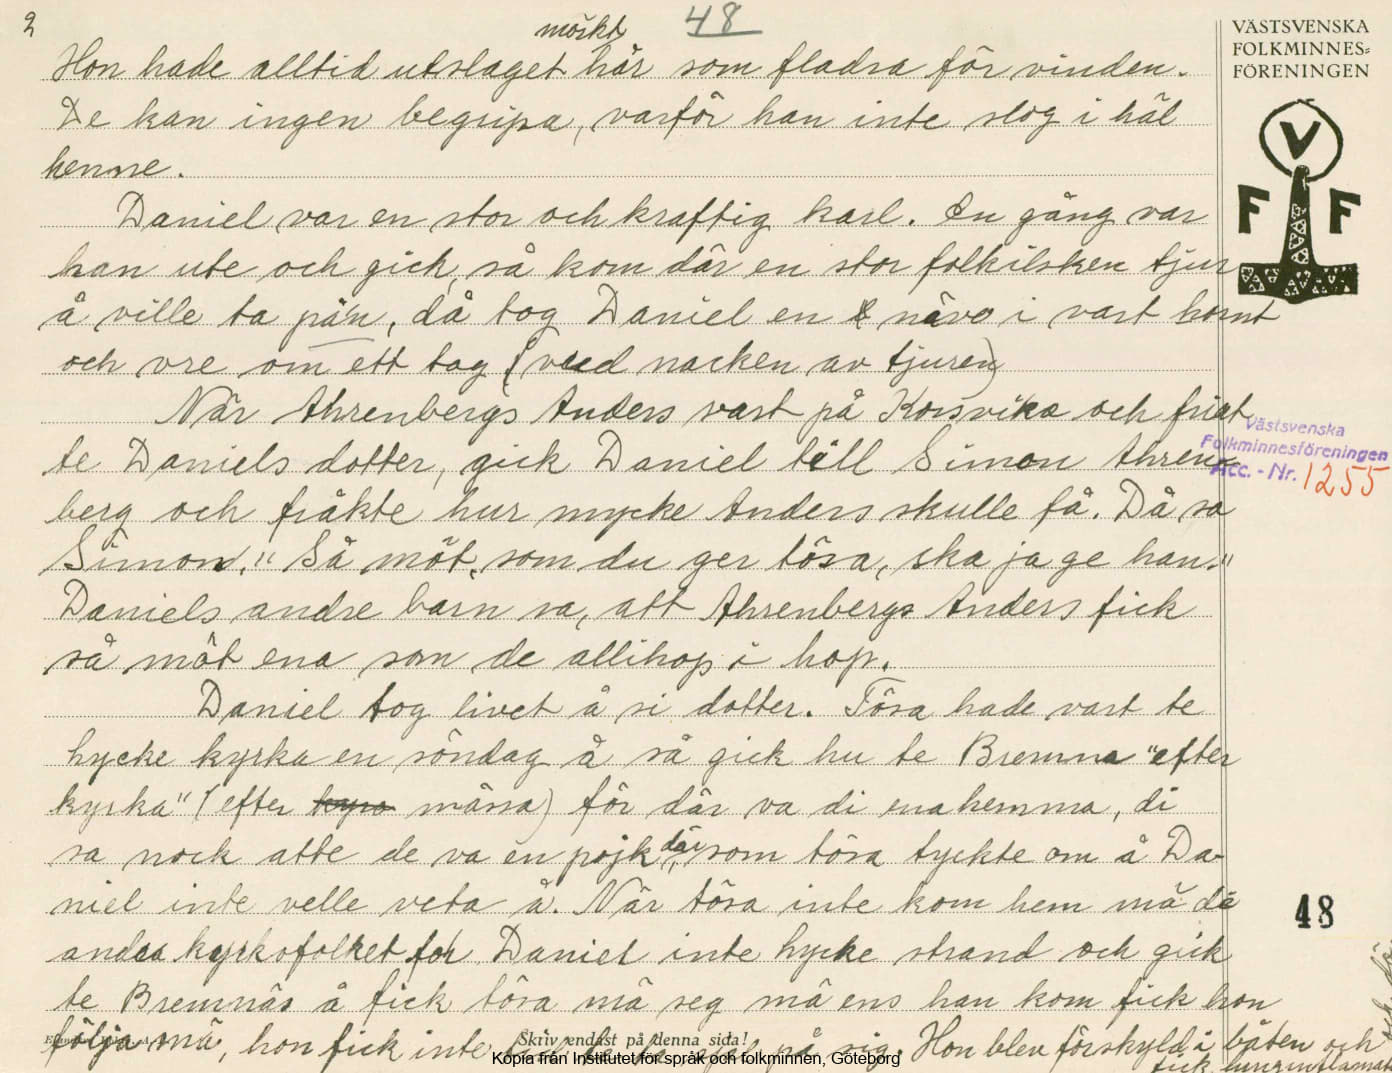 2
48
VÄSTSVENSKA
FOLKMINNES=
FÖRENINGEN
V
F F
mörkt
Hon hade alltid utslaget hår som fladra för vinden.
De kan ingen begripa, varför han inte slog i häl
henne.
Daniel var en stor och kraftig karl. En gång var
han ute och gick, så kom där en stor folkilsken tjur
å ville ta på'n, då tog Daniel en näve i vart hornt
och vre om ett tag (vred nacken av tjuren)
När Ahrenbergs Anders vart på Korsvika och friat
te Daniels dotter, gick Daniel till Simon Ahren-
berg och fråkte hur mycke Anders skulle få. Då sa
Simon, "Så möt, som du ger tösa, ska ja ge han."
Daniels andre barn sa, att Ahrenbergs Anders fick
så möt ena som de allihop i hop.
Daniel tog livet å si dotter. Tösa hade vart te
hycke kyrka en söndag å så gick hu te Bremna "efter
kyrka" (efter mässa) för där va di ena hemma, di
sa nock atte de va en pojk där, som tösa tyckte om å Da-
niel inte velle veta å. När tösa inte kom hem mä dä
andra kyrkofolket for Daniel inte hycke strand och gick
te Bremnäs å fick tösa mä seg mä ens han kom fick hon
följa mä, hon fick inte på sig. Hon blev förskyld i båten och
fick
Västsvenska
Folkminnesföreningen
Acc. - Nr. 1255
48
Skriv endast på denna sida!
Kopia från Institutet för språk och folkminnen, Göteborg